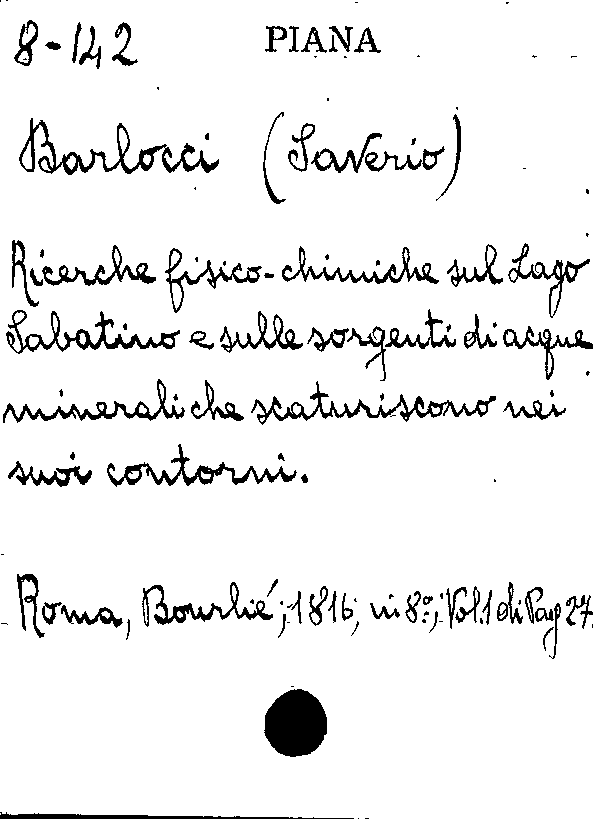 8-142 PIANA
Barlocci (Saverio)
Ricerche fisico-chimiche sul Lago
Sabatino e sulle sorgenti di acque
minerali che scaturiscono nei
suoi contorni.
Roma, Bourlié; 1816; in 8.°; Vol. 1 di Pag 27.